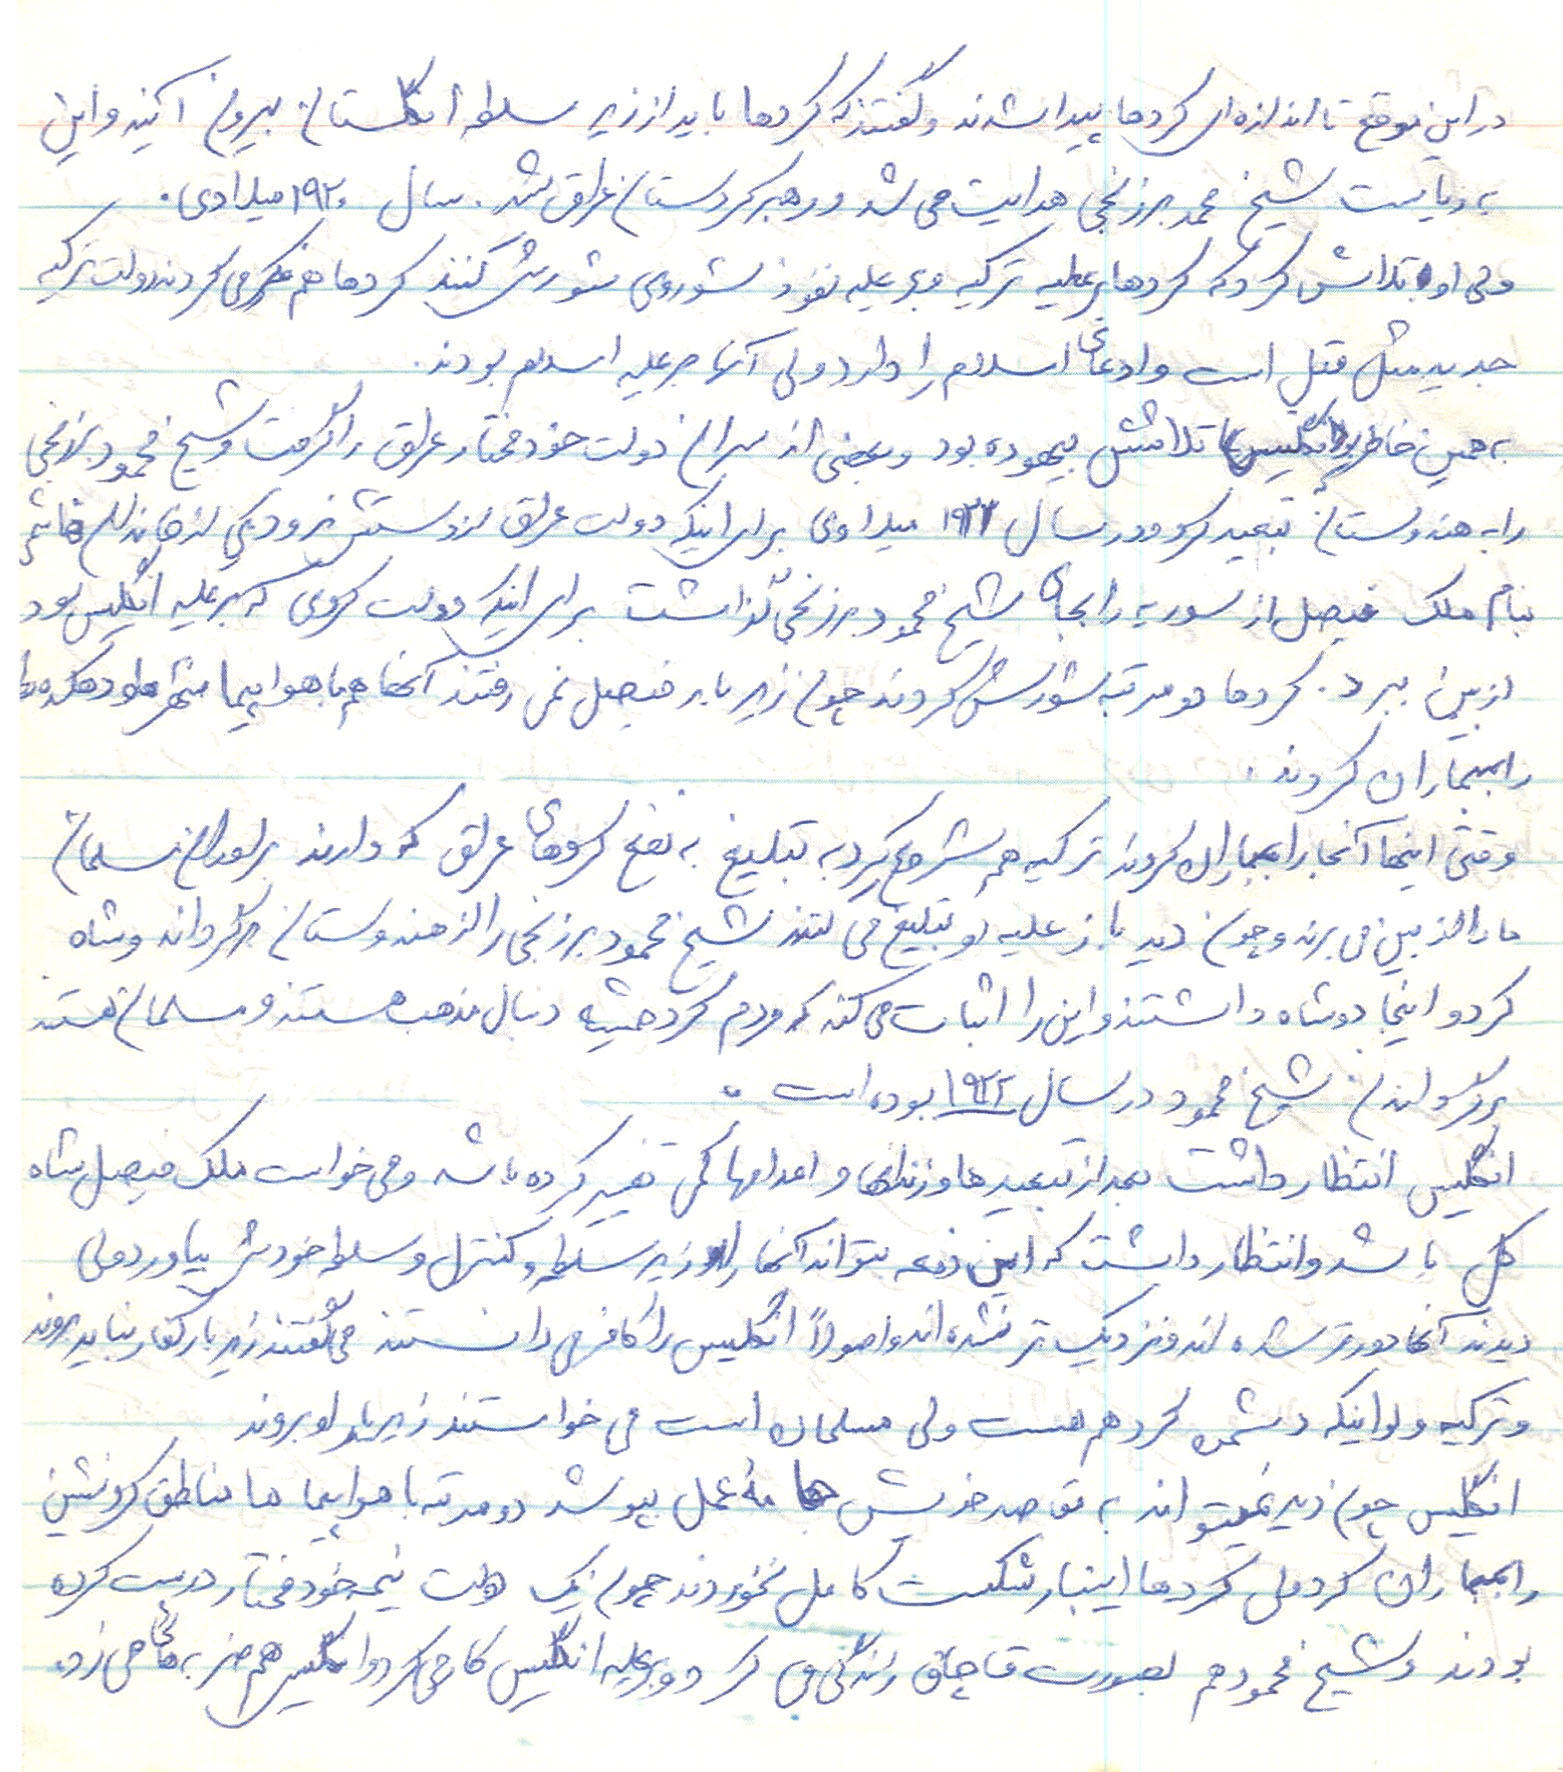 در این موقع تا اندازه‌ای کردها پیدا شدند و گفتند که کردها باید از زیر سلطه انگلستان بیرون آیند و این
به ریاست شیخ محمد برزنجی هدایت می شد و رهبر کردستان عراق شد. سال ۱۹۲۰ میلادی.
وقتی او تلاش کرد که کردها بر علیه ترکیه و بر علیه نفوذ شوروی شورش کنند کردها هم فکر می کردند دولت ترکیه
جدید مثل قبل است و ادعای اسلام را دارد ولی آنها بر علیه اسلام بودند.
به همین خاطر انگلیس تلاشش بیهوده بود و بعضی از سران دولت خودمختار عراق را گرفت و شیخ محمود برزنجی
را به هندوستان تبعید کرد و در سال ۱۹۲۱ میلادی برای اینکه دولت عراق از دستش نرود یکی از خاندان هاشمی
بنام ملک فیصل از سوریه را بجای شیخ محمود برزنجی گذاشت برای اینکه دولت کردی که بر علیه انگلیس بود
از بین ببرد. کردها دو مرتبه شورش کردند چون زیر بار فیصل نمی رفتند آنها هم با هواپیما شهرها و دهکده ها
را بمباران کردند.
وقتی اینها آنجا را بمباران کردند ترکیه هم شروع کرد به تبلیغ به نفع کردهای عراق که دارند برادران مسلمان
ما را از بین می برند و چون دید باز علیه او تبلیغ می کنند شیخ محمود برزنجی را از هندوستان برگرداند و شاه
کرد و اینجا دو شاه داشتند و این را اثبات می کند که مردم کرد همیشه دنبال مذهب هستند و مسلمان هستند
برگرداندن شیخ محمود در سال ۱۹۲۲ بوده است.
انگلیس انتظار داشت بعد از تبعیدها و زندانها و اعدامها کمی تغییر کرده باشد و می خواست ملک فیصل شاه
کل باشد و انتظار داشت که این دفعه بتواند آنها را زیر سلطه و کنترل و سلطه خودش بیاورد ولی
دیدند آنها دورتر شده اند و نزدیک تر نشده اند و اصولاً انگلیس را کافر می دانستند می گفتند زیر بار کفار نباید بروند
و ترکیه ولو اینکه دشمن کرد هم هست ولی مسلمان است می خواستند زیر بار او بروند
انگلیس چون دید نمیتواند به مقاصد خویش جامه عمل بپوشد دو مرتبه با هواپیما ها مناطق کردنشین
را بمباران کرد ولی کردها اینبار شکست کامل نخوردند چون یک دولت نیمه خودمختار درست کرده
بودند و شیخ محمود هم بصورت قاچاق زندگی می کرد و بر علیه انگلیس کار می کرد و انگلیس هم ضربه هائی می زد.